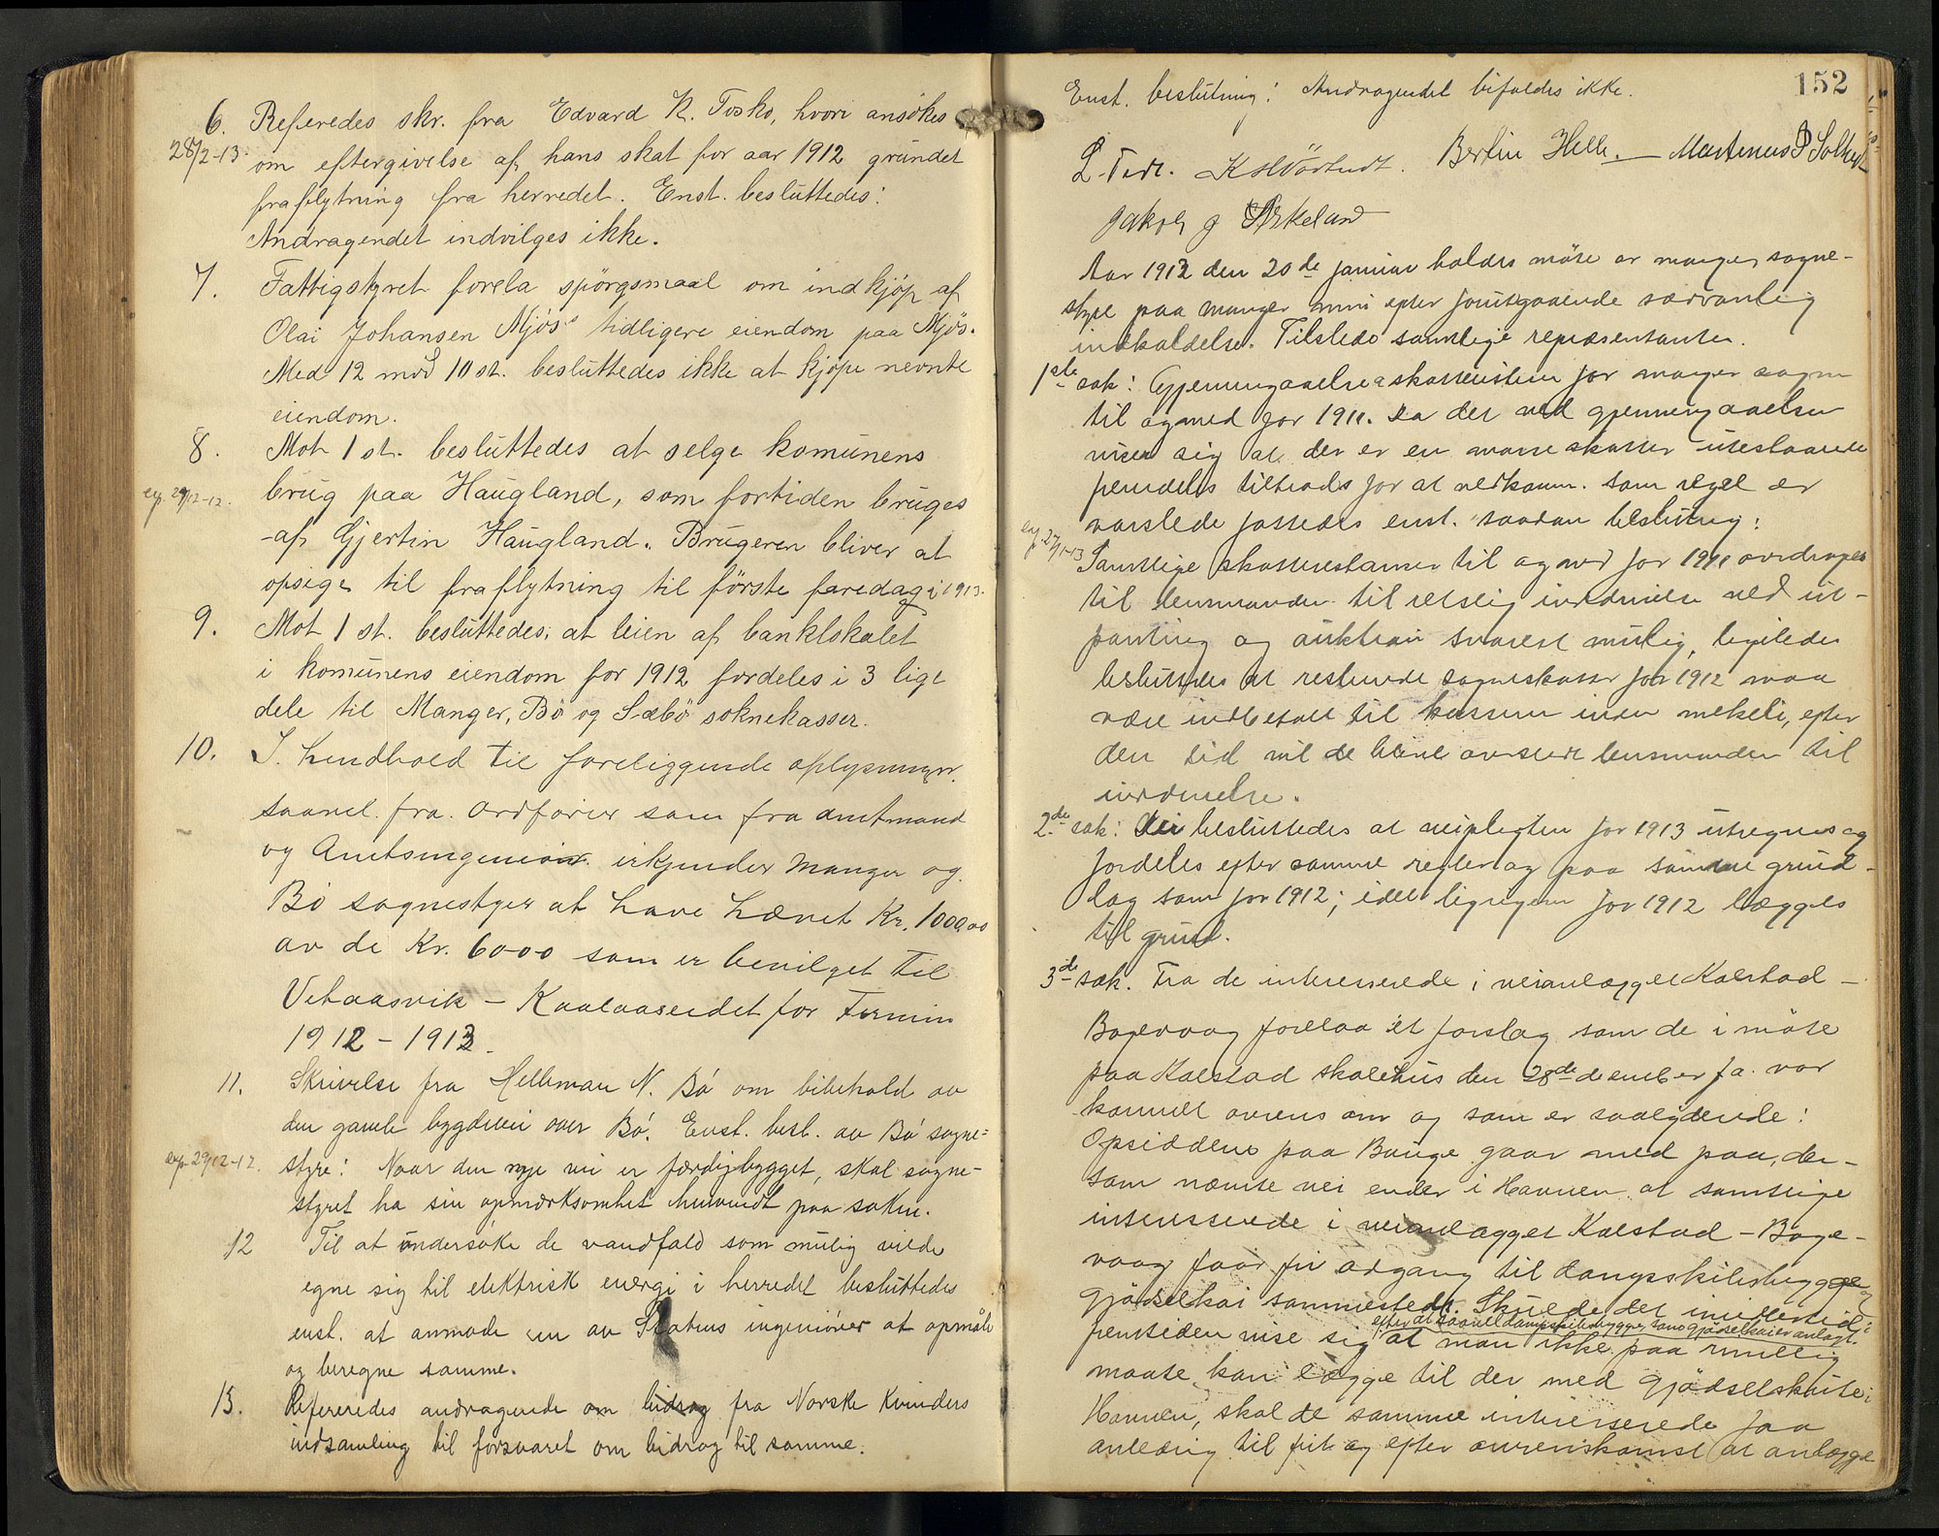 6. Referedes skr. fra Edvard K. Toska, hvori ansökes
28/2-13. om eftergivelse af hans skat for aar 1912 grundet
fraflytning fra herredet. Enst. besluttedes:
Andragendet indvilges ikke.
7. Fattigstyret forela spörgsmaal om indkjöp af
Olai Johansen Mjös's tidligere eiendom paa Mjös.
Med 12 mod 10 st. besluttedes ikke at kjöpe nevnte
eiendom.
8. Mot 1 st. besluttedes at selge komunens
exp. 29/12-12. brug paa Haugland, som fortiden bruges
af Gjertin Haugland. Brugeren bliver at
opsige til fraflytning til förste faredag i 1913.
9. Mot 1 st. besluttedes, at leien af banklokalet
i komunens eiendom for 1912 fordeles i 3 lige
dele til Manger, Bö og Sæbö soknekasser.
10. I hendhold til foreliggende oplysninger
saavel fra ordförer som fra amtmand
og Amtsingeniör erkjender Manger og
Bö sognestyer at have hævet Kr. 1000,00
av de Kr. 6000 som er bevilget til
Vetaasvik - Kaalaaseidet for Termin
1912 - 1913.
11. Skrivelse fra Helleman N. Bö om bibehold av
den gamle bygdevei over Bö. Enst. besl. av Bö sogne=
exp. 29/12-12. styre: Naar den nye vei er færdigbygget, skal sogne-
styret ha sin opmerksomhet henvendt paa saken.
12 Til at undersöke de vandfald som mulig vilde
egne sig til elektrisk energi i herredet besluttedes
enst. at anmode en av Statens ingeniörer at opmåle
og beregne samme.
13. Refereredes andragende om bidrag fra Norske Kvinders
indsamling til forsvaret om bidrag til samme.
152
Enst. beslutning: Andragendet bifaldes ikke.
Bertin Helle. Martinus P Solheim
Jakob J Askeland
Aar 1913 den 20de januar holdes möte av manger sogne-
styre paa manger efter forutgaaende sædvanlig
indkaldelse. Tilstede samtlige repræsentanter.
1ste sak: Gjennemgaaelse a skatterestanser for manger sogn
til og med for 1911. Da det ved gjennemgaaelsen
viser sig at der er en masse skatter utestaaende
fremdeles tiltrods for at vedkomm. som regel er
varslede fattedes enst. saadan beslutning:
exp. 27/1-13 Samtlige skatterestanser til og med for 1911 overdrages
til lensmanden til retslig inddrivelse ved ut-
panting og auktion snarest mulig, ligeledes
besluttedes at resterende sogneskatter for 1912 maa
være indbetalt til kassern inden, efter
den tid vil de blive oversent lensmanden til
inddrivelse.
2de sak: Det besluttedes at veiplegten for 1913 utregnes og
fordeles efter samme regler og paa samme grund-
lag som for 1912; idet ligningen for 1912 lægges
til grund.
3de sak. Fra de interesserede i veianlægget Kalstad -
Bogevaag forelaa et forslag som de i möte
paa Kalstad skolehus den 28de desember f.a. var
kommet overens om og som er saalydende:
Opsidderne paa Bauge gaar med paa, der-
som nævnte vei ender i Havnen at samtlige
interesserede i veianlægget Kalstad - Boge-
vaag faar fri adgang til dampskibsbrygge og
gjödselkai sammesteds. Skulde det imidlertid i
efter at saavel dampskibsbrygge som gjödselkaien anlagt.
fremtiden vise sig at man ikke paa rimelig
maate kan lægge til der med gjödselskuite i
Havnen, skal de samme interesserede faa
anledning til frit og efter overenskomst at anlægge